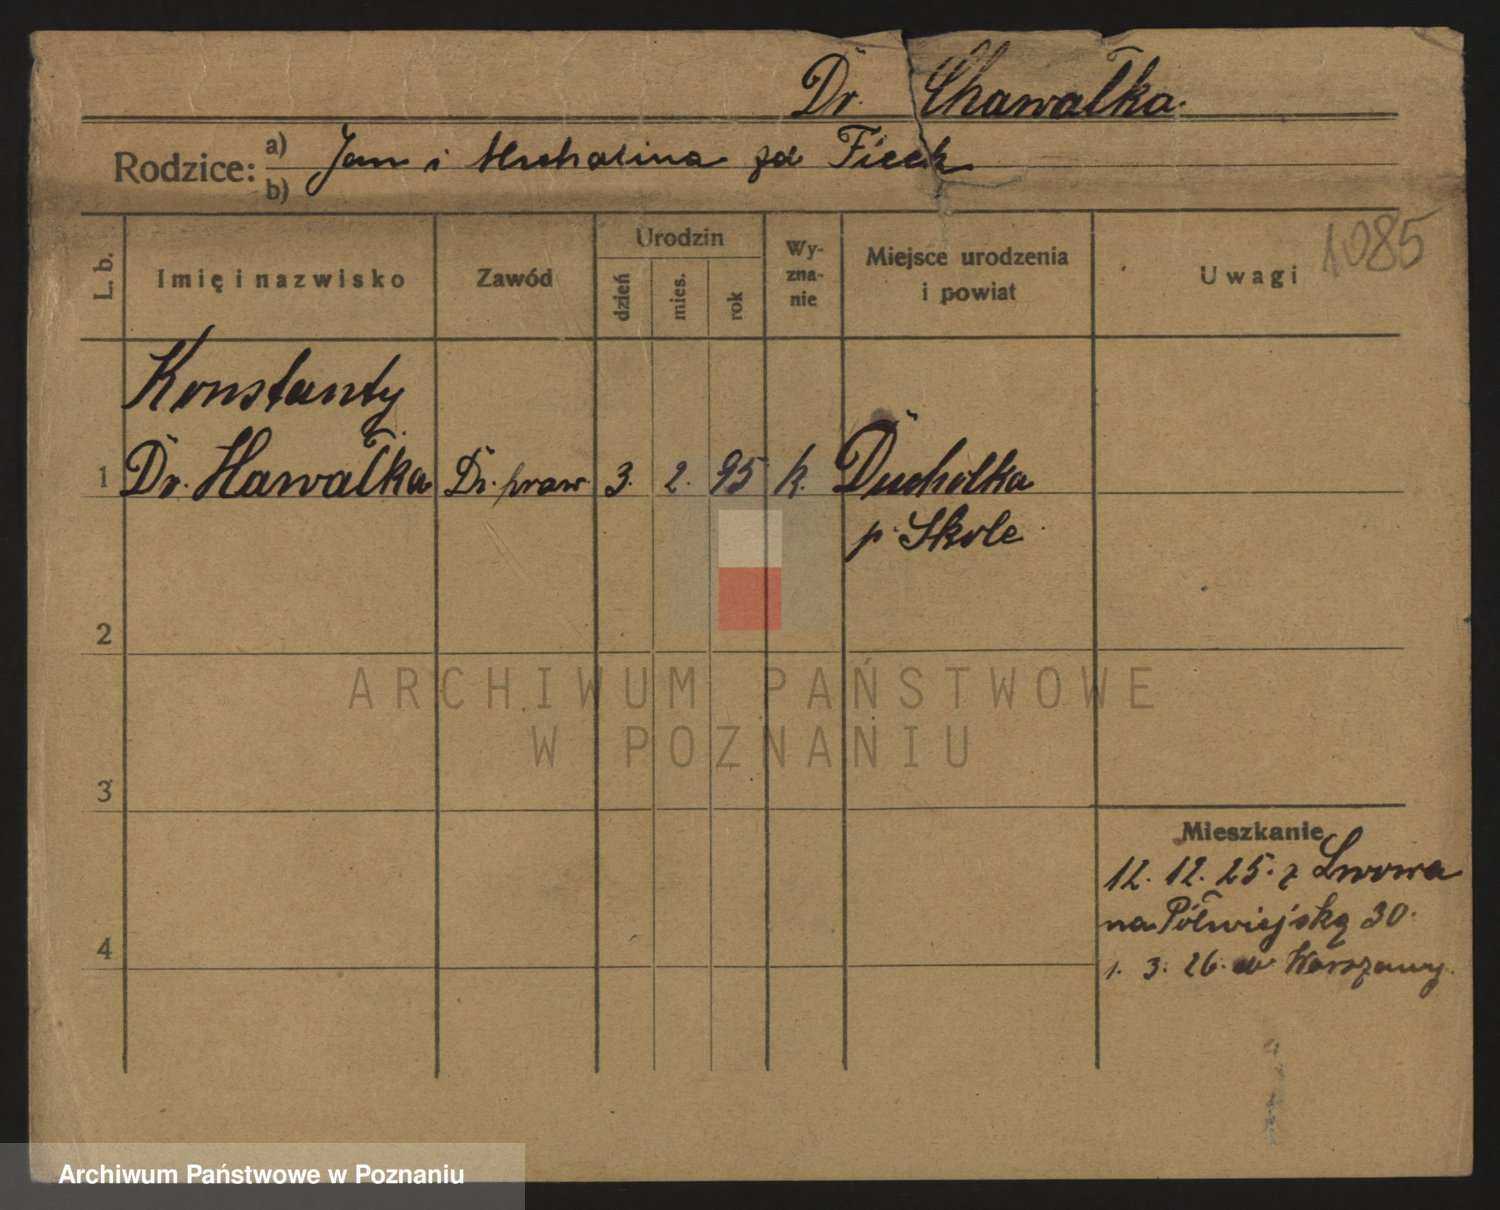 Dr. Chawałka.
Rodzice: a) Jan i Michalina zd Ficek
b)
L. b. Imię i nazwisko Zawód Urodzin dzień mies. rok Wy-zna-nie Miejsce urodzenia i powiat Uwagi 1085
Konstanty
1 Dr. Hawałka Dr. praw. 3. 2. 95 k. Ducholka
p. Skole
2
3
4
Mieszkanie
12. 12. 25. z Lwowa
na Półwiejską 30.
1. 3. 26. do Warszawy.
ARCHIWUM PAŃSTWOWE
W POZNANIU
Archiwum Państwowe w Poznaniu